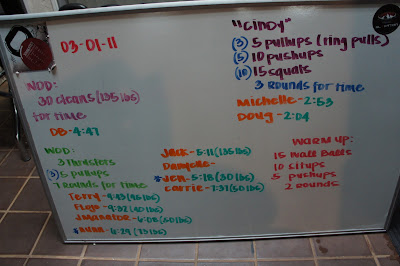 03-01-11
WOD:
30 cleans (135 lbs)
for time
DB - 4:47
WOD:
3 Thrusters
(3) 5 pullups
7 rounds for time
Terry - 4:43 (95 lbs)
Flojo - 9:02 (40 lbs)
Jack - 5:11 (135 lbs)
Danyelle -
Jen - 5:18 (30 lbs)
Carrie - 7:37 (50 lbs)
"Cindy"
(3) 5 pullups (ring pulls)
(5) 10 pushups
(10) 15 squats
3 Rounds for time
Michelle - 2:53
Doug - 2:04
Warm up:
15 Wall Balls
10 situps
5 pushups
2 rounds